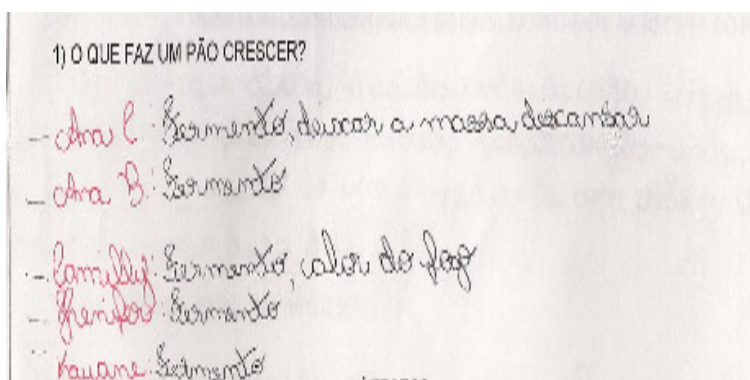 1) O QUE FAZ UM PÃO CRESCER?
- Ana C: Fermento, deixar a massa descansar
- Ana B: Fermento
- Camilly: Fermento, calor do fogo
- Jhenifer: Fermento
Kauane: Fermento